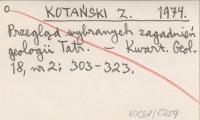 KOTAŃSKI Z. 1974.
Przegląd wybranych zagadnień
geologii Tatr. – Kwart. Geol.
18, nr 2; 303-323.